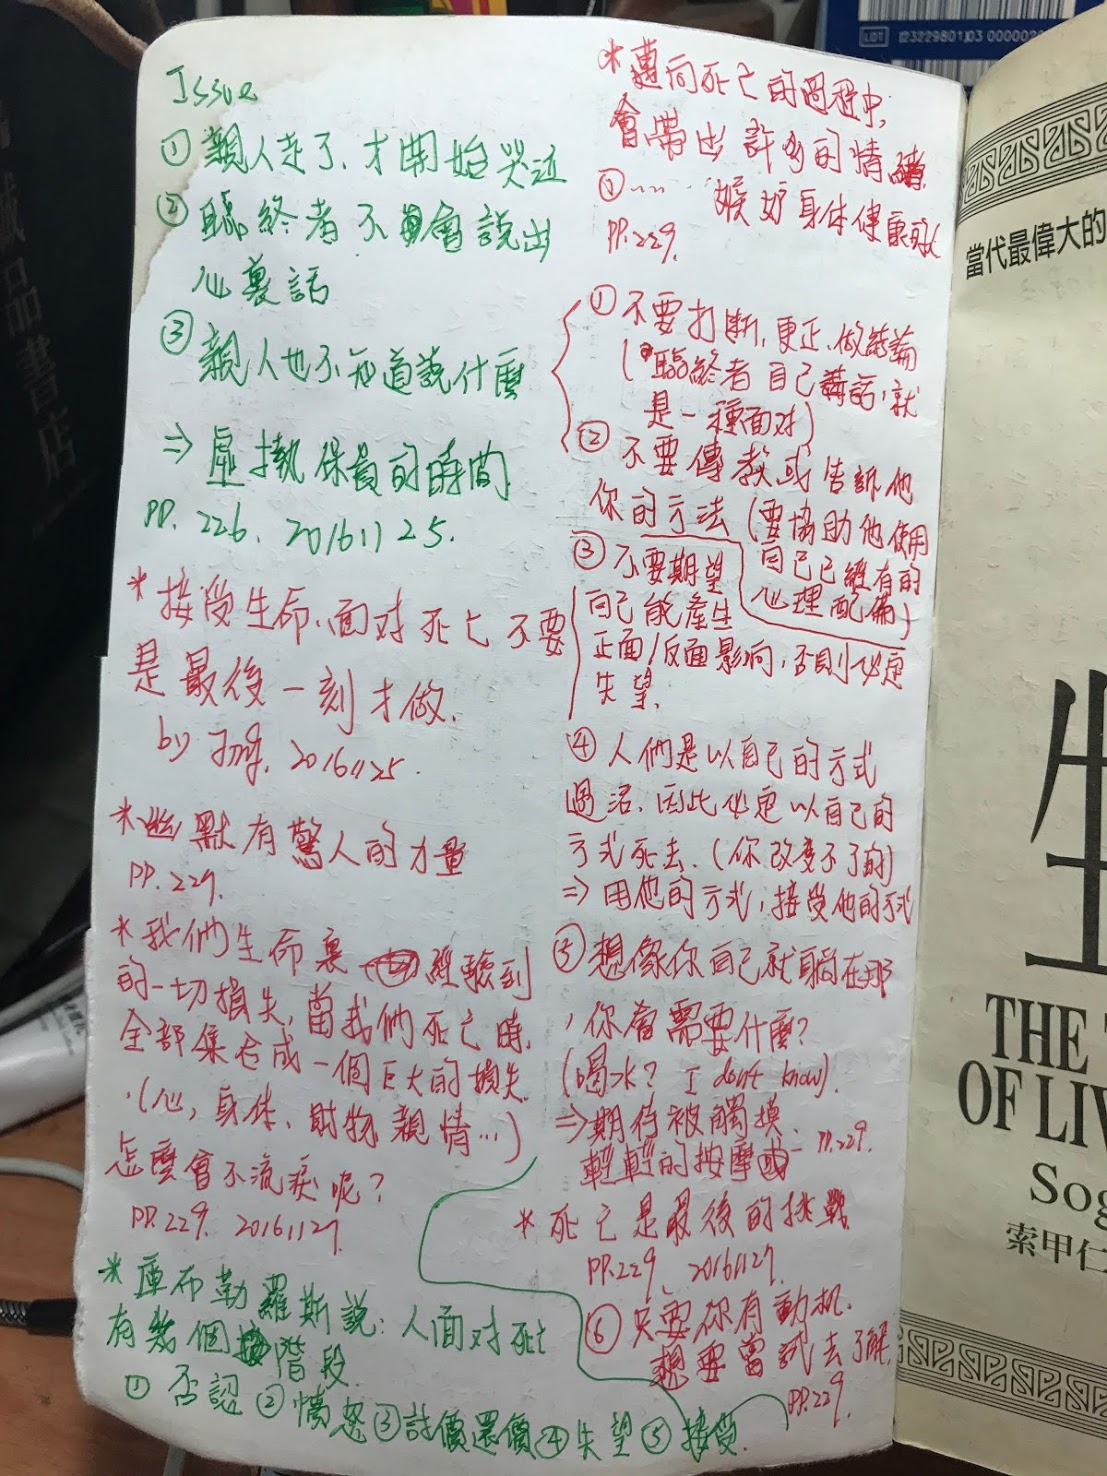 Issue
① 親人走了、才開始哭泣
② 臨終者不會說出
心裏話
③ 親人也不知道說什麼
⇒ 虛擲保貴的時間
PP. 226. 20161125.
* 接受生命、面对死亡不要
是最後一刻才做.
by 20161125.
* 幽默有驚人的力量
PP. 229.
* 我們生命裏 經驗到
的一切損失, 當我們死亡時,
全部集合成一個巨大的損失
(心, 身体、財物 親情…)
怎麼會不流淚呢?
PP. 229. 20161127.
* 庫布勒羅斯說: 人面对死亡
有幾個階段
① 否認 ② 憤怒 ③ 討價還價 ④ 失望 ⑤ 接受.
* 邁向死亡的過程中,
會帶出許多的情緒.
① …… 嫉妒身体健康的人
PP. 229.
① 不要打斷, 更正、做結論
(臨終者自己講話, 就
是一種面对)
② 不要傳教或告訴他
你的方法 (要協助他使用
自己已經有的
心理配備)
③ 不要期望
自己能產生
正面/反面影响, 否則必定
失望.
④ 人們是以自己的方式
過活、因此必定以自己的
方式死去. (你改变不了的)
⇒ 用他的方式, 接受他的方式
⑤ 想像你自己就躺在那
, 你會需要什麼?
(喝水? I don't know).
⇒ 期待被觸摸、
輕輕的按摩 PP. 229.
* 死亡是最後的挑戰
PP. 229. 20161127.
⑥ 只要你有動机.
想要嘗試去了解,
PP. 229.
LOT 12322980103
當代最偉大的
生
THE
OF LIV
Sog
索甲仁
誠品書店